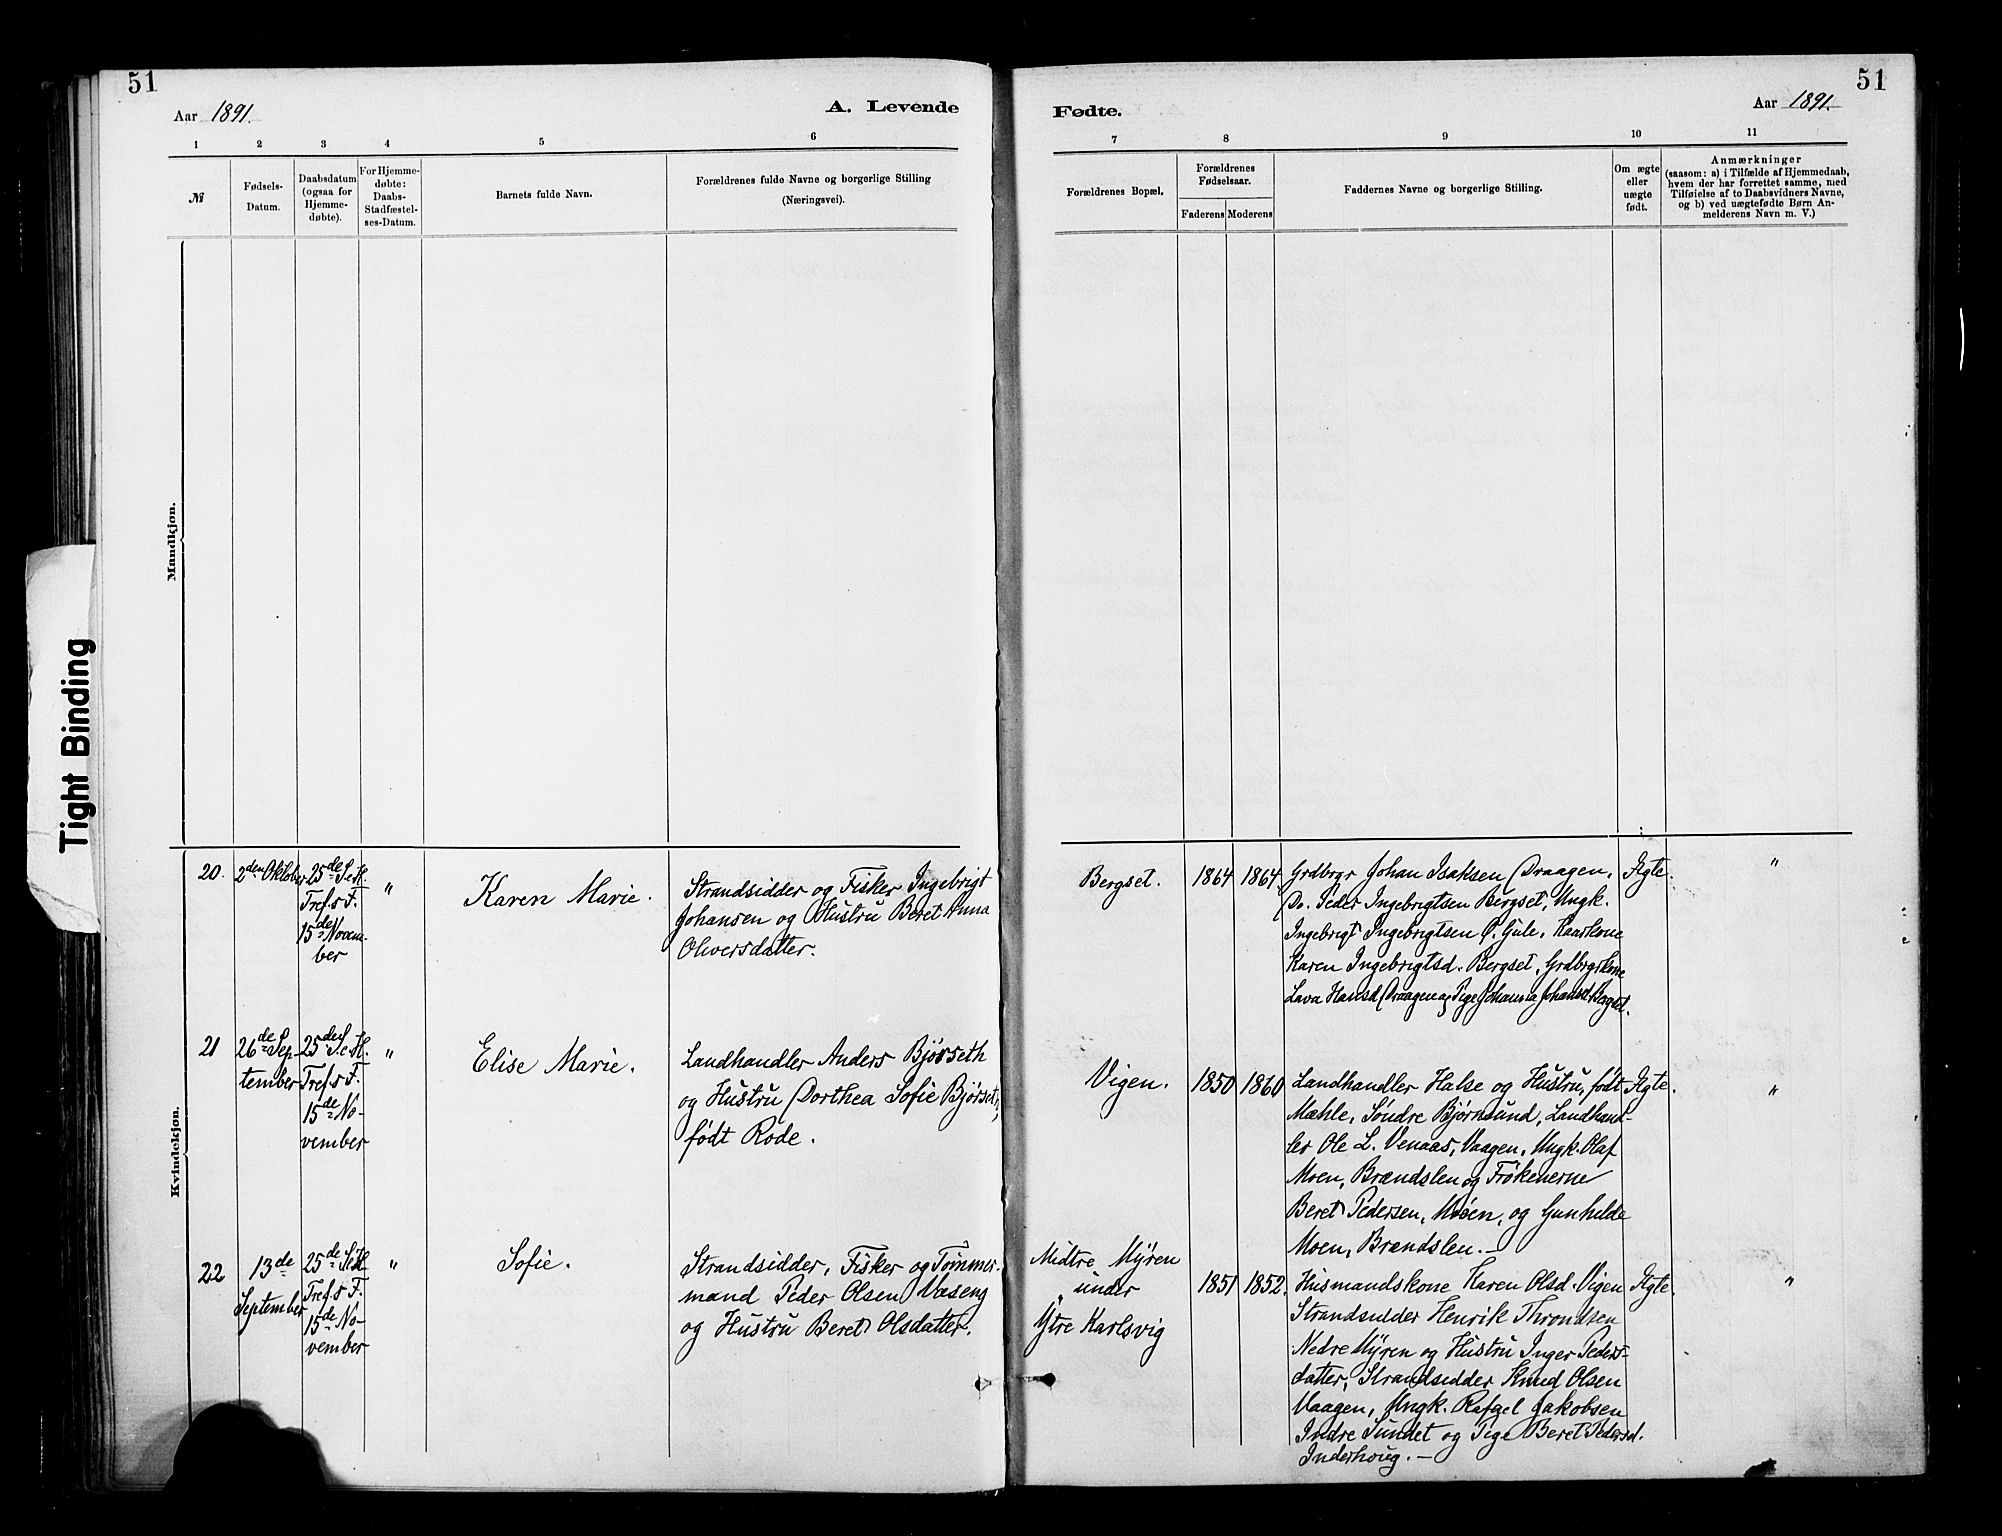 51
Aar 1891.
A. Levende
1 2 3 4 5 6
№
Fødsels-
Datum.
Daabsdatum
(ogsaa for
Hjemme-
døbte).
For Hjemme-
døbte:
Daabs-
Stadfæstel-
ses-Datum.
Barnets fulde Navn.
Forældrenes fulde Navne og borgerlige Stilling
(Næringsvei).
Mandkjøn.
Tight Binding
Kvindekjøn.
20.
2den Oktober
25de S. e. H.
Tref. s F.
15de Novem-
ber
"
Karen Marie.
Strandsidder og Fisker Ingebrigt
Johansen og Hustru Beret Anna
Oliversdatter.
21
26de Sep-
tember
25de S. e. H.
Tref. s F.
15de No-
vember
"
Elise Marie.
Landhandler Anders Bjørseth
og Hustru Dorthea Sofie Bjørset,
født Rode.
22
13de
September
25de S. e. H.
Tref. s F.
15de No-
vember
"
Sofie.
Strandsidder, Fisker og Tømmer-
mand Peder Olsen Vaseng
og Hustru Beret Olsdatter.
51
Fødte.
Aar 1891.
7 8 9 10 11
Forældrenes Bopæl.
Forældrenes
Fødselsaar.
Faderens Moderens
Faddernes Navne og borgerlige Stilling.
Om ægte
eller
uægte
født.
Anmærkninger
(saasom: a) i Tilfælde af Hjemmedaab,
hvem der har forrettet samme, med
Tilføielse af to Daabsvidners Navne,
og b) ved uægtefødte Børn An-
melderens Navn m. V.)
Bergset.
1864 1864
Grdbrgr Johan Isaksen Draagen,
Do. Peder Ingebrigtsen Bergset, Ungk.
Ingebrigt Ingebrigtsen Ø. Gule, Kaarkone
Karen Ingebrigtsd. Bergset, Grdbrgrkone
Lava Hansd Draagen og Pige Johanna Johansd Bergset.
Ægte.
"
Vigen.
1850 1860
Landhandler Halse og Hustru, født
Mæhle, Søndre Bjørnsund, Landhand-
ler Ole L. Venaas, Vaagen, Ungk. Olaf
Moen, Brændslen og Frøkenerne
Beret Pedersen, Moen, og Gunhilde
Moen, Brændslen.-
Ægte.
"
Midtre Myren
under
Ytre Karlsvig
1851 1852.
Husmandskone Karen Olsd. Vigen
Strandsidder Henrik Throndsen
Nedre Myren og Hustru Inger Peders-
datter, Strandsidder Knud Olsen
Vaagen, Ungk. Rafael Jakobsen
Indre Sundet og Pige Beret Pedersd.
Inderhoug.-
Ægte.
"